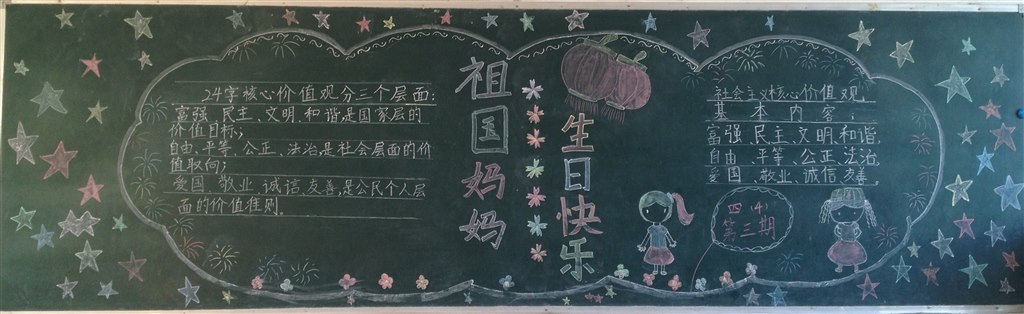 24字核心价值观分三个层面:
富强、民主、文明、和谐是国家层的
价值目标;
自由、平等、公正、法治是社会层面的价
值取向;
爱国、敬业、诚信、友善,是公民个人层
面的价值准则。
祖国妈妈
生日快乐
社会主义核心价值观
基本内容:
富强、民主、文明、和谐
自由、平等、公正、法治
爱国、敬业、诚信、友善。
四(4)
第三期